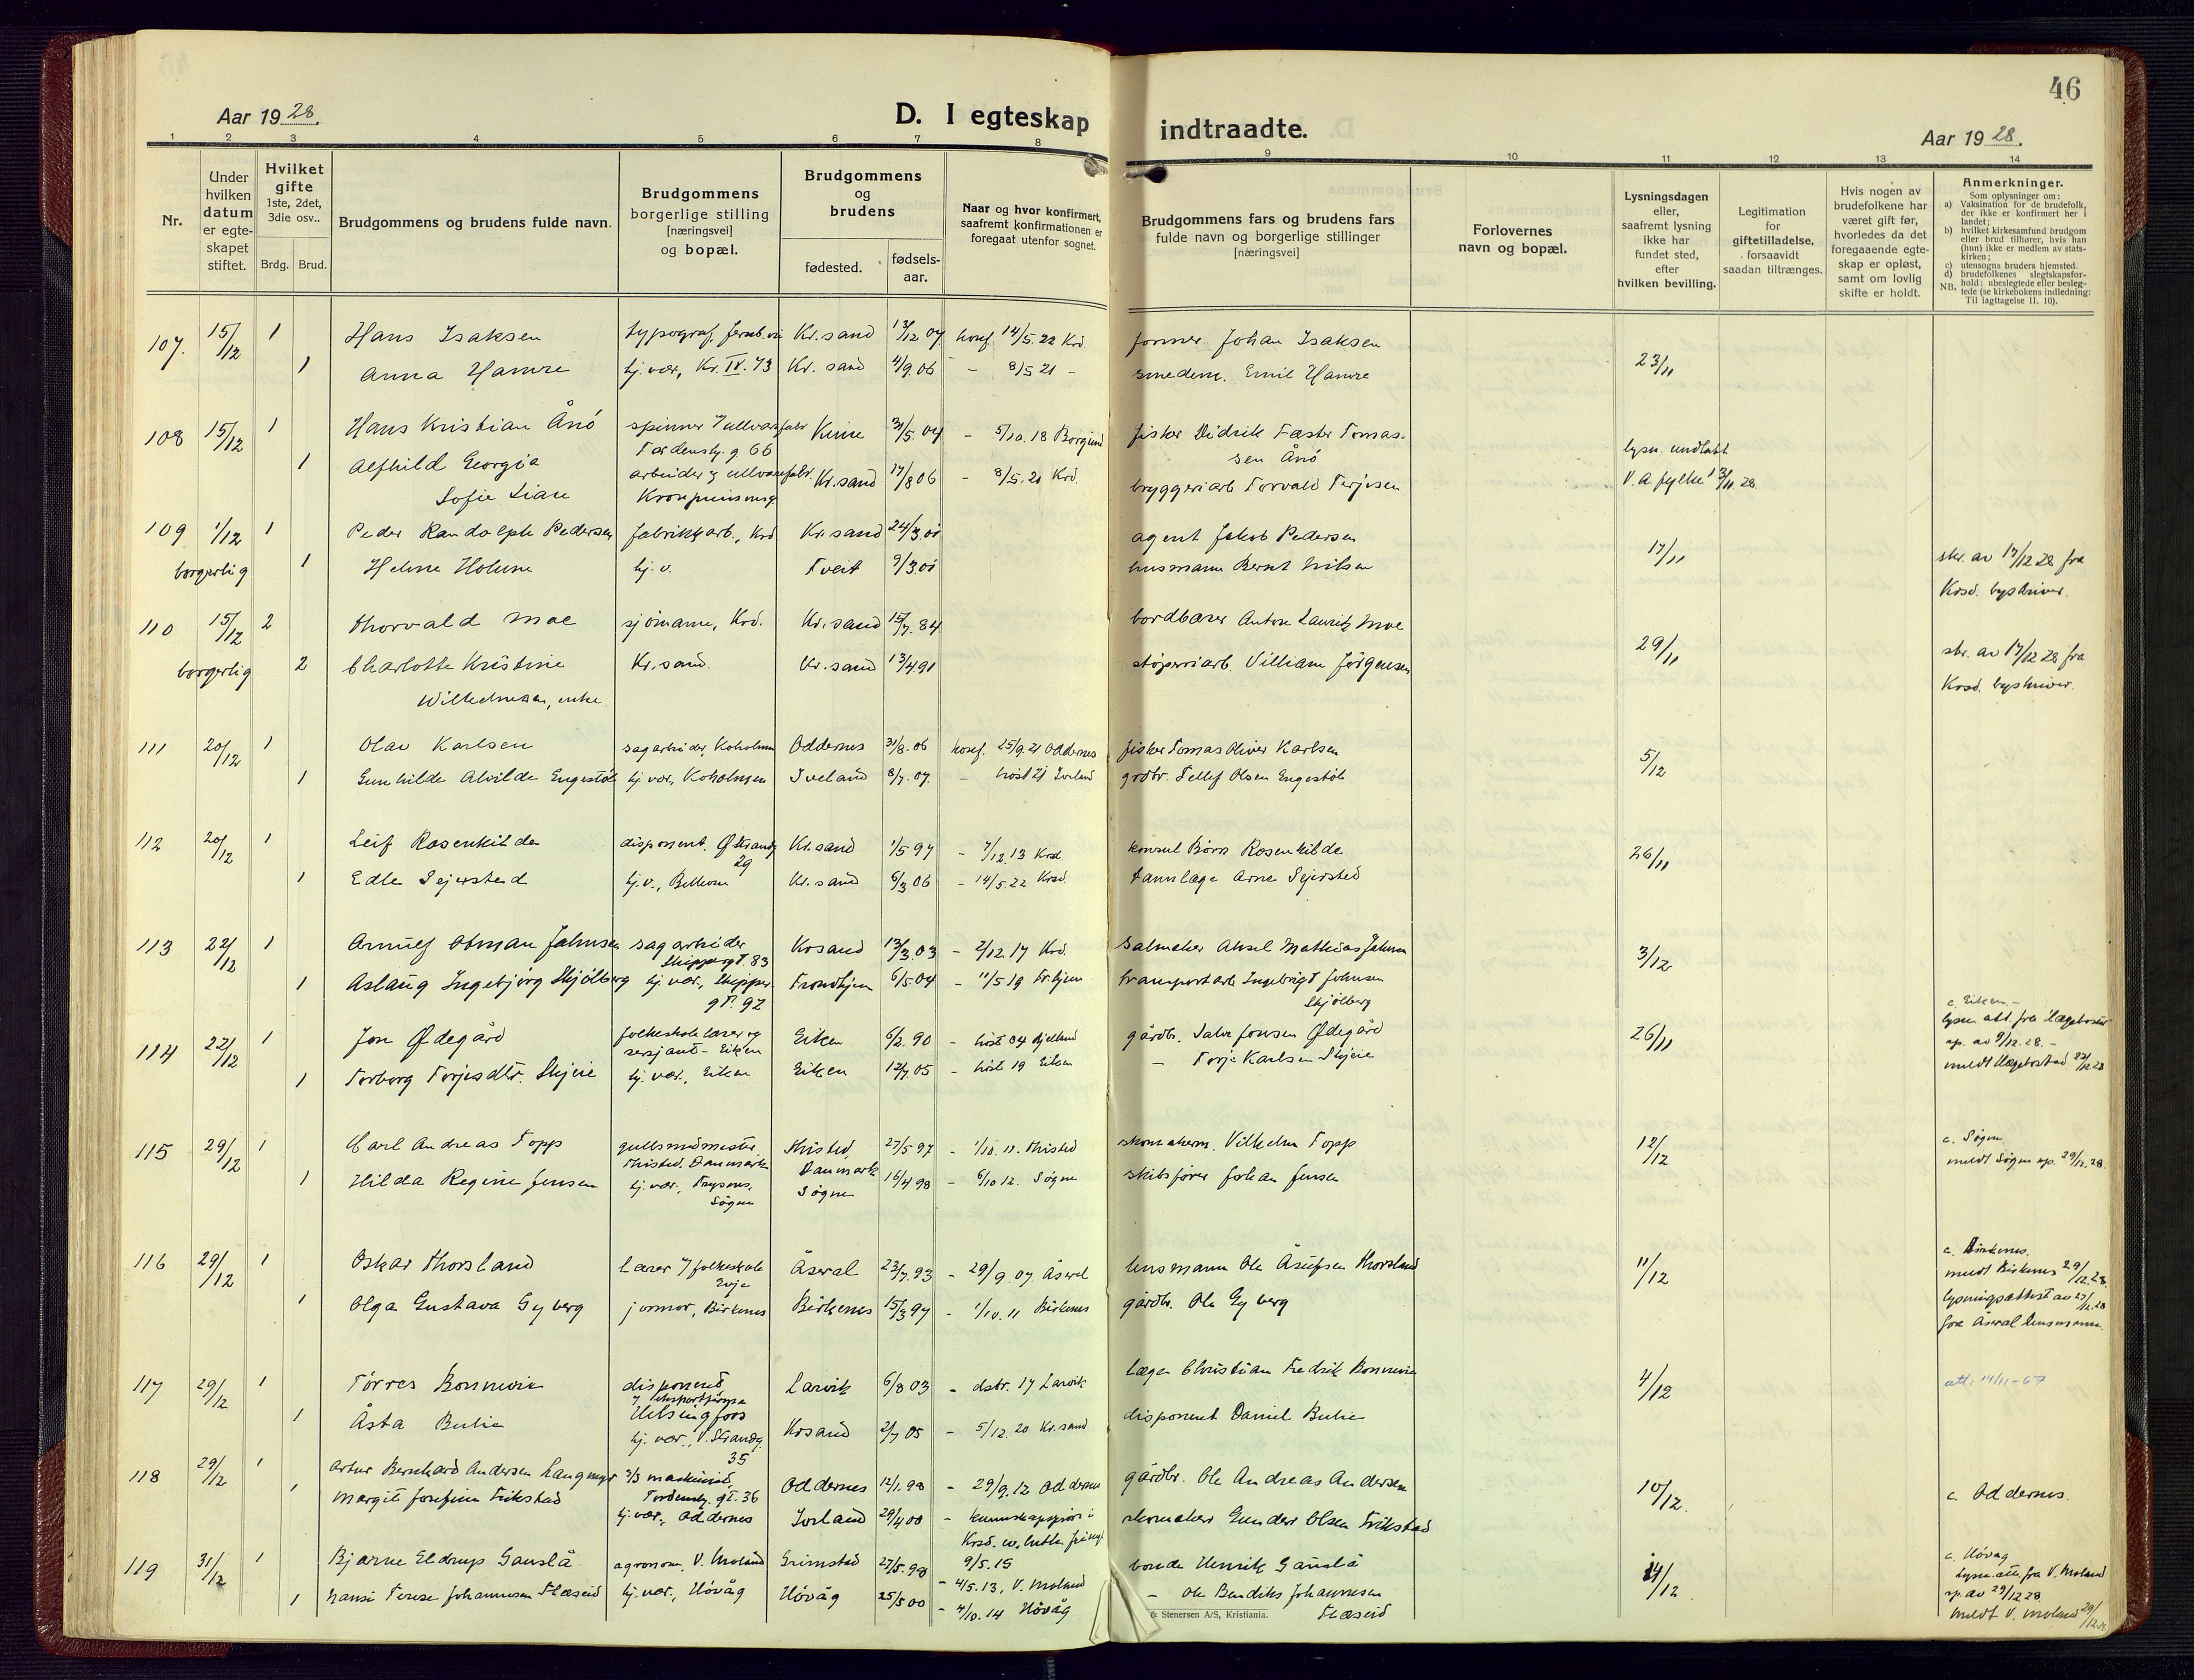 46
Aar 1928.
D. I egteskap indtraadte.
Aar 1928.
1 2 3 4 5 6 7 8 9 10 11 12 13 14
Nr.
Under hvilken datum er egte-skapet stiftet.
Hvilket gifte 1ste, 2det, 3die osv..
Brdg. Brud.
Brudgommens og brudens fulde navn.
Brudgommens borgerlige stilling [næringsvei] og bopæl.
Brudgommens og brudens
fødested. fødsels-aar.
Naar og hvor konfirmert, saafremt konfirmationen er foregaat utenfor sognet.
Brudgommens fars og brudens fars fulde navn og borgerlige stillinger [næringsvei]
Forlovernes navn og bopæl.
Lysningsdagen eller, saafremt lysning ikke har fundet sted, efter hvilken bevilling.
Legitimation for giftetilladelse, forsaavidt saadan tiltrænges.
Hvis nogen av brudefolkene har været gift før, hvorledes da det foregaaende egte-skap er opløst, samt om lovlig skifte er holdt.
Anmerkninger.
Som oplysninger om:
a) Vaksination for de brudefolk, der ikke er konfirmert her i landet;
b) hvilket kirkesamfund brudgom eller brud tilhører, hvis han (hun) ikke er medlem av stats-kirken;
c) utensogns bruders hjemsted.
d) brudefolkenes slegtskapsfor-hold: ubeslegtede eller beslegtede (se kirkebokens indledning: Til iagttagelse II. 10).
NB.
107. 15/12 1 Hans Isaksen Kr.sand 13/12 04 konf. 14/5.22 Krd. former Johan Isaksen
1 Anna Hamre hj. vær, Kr. IV. 73 Kr. sand 4/9.06 - 8/5 21 - smedem. Emil Hamre 23/11
108 15/12 1 Hans Kristian Ånö spinner 31/5.04 - 5/10.18 Borgund fisker Didrik Tomas-
sen Ånö
1 Alfhild Georgia arbeider Kr.sand 17/8 06 - 8/5.21 Krd. bryggeriarb Torvald Terjesen
Sofie Lian
lysn. undlatt
V. A. fylke 13/11 28
109 1/12 1 Peder Randolph Pedersen fabrikkarb., Krd Kr.sand 24/3.01 agent Jakob Pedersen
borgerlig 1 Helene Holmen hj. v. Tveit 9/3.01 husmann Bernt Nilsen 17/11
skr. av 17/12 28 fra
Krsd. byskriver.
110 15/12 2 Thorvald Moe sjömann, Krd. Kr.sand 15/7.84 bordbærer Anton Lauritz Moe
borgerlig 2 Charlotte Kristine Kr.sand. Kr.sand 13/4 91 støperiarb. Villiam Jörgensen 29/11
Wilhelmsen, enke
skr. av 17/12 28 fra
Krsd. byskriver.
111 20/12 1 Olav Karlsen sagarbeider, Koholmen Oddernes 31/8.06 konf. 25/9.21 Oddernes fisker Tomas Oliver Karlsen
1 Gunhilde Alvilde Engestöl hj. vær, Koholmen Iveland 8/7.07. - höst 21 Iveland grdbr. Tellef Olsen Engestöl 5/12
112 20/12 1 Leif Rosenkilde disponent. Ø Strandg 29 Kr.sand 1/5 97 - 7/12.13 Krd konsul Börs Rosenkilde
1 Edle Sejersted hj. v., Kr.sand 6/3 06 - 14/5.22 Krsd. tannlæge Arne Sejersted 26/11
113 22/12 1 Arnulf Otman Johnsen sagarbeider Skippergt. 83 Krsand 13/3.03 - 2/12.17 Krd. salmaker Aksel Mathias Johnsen
1 Aslaug Ingebjørg Skjölberg hj. vær., Skipper-gt. 92 Trondhjem 6/5 04 - 11/5 19 Tr.hjem transportarb Ingebrigt Johnsen Skjölberg 3/12
114 22/12 1 Jon Ødegård folkeskolelærer og sersjant - Eiken Eiken 6/2.90 - höst 04 Fjelland gårdbr. Salve Jonsen Ødegård
1 Torborg Torjesdtr. Skjeie hj. vær., Eiken Eiken 12/7.05 - höst 19 Eiken - Torje Karlsen Skjeie 26/11
c. Eiken. -
lysn att. fra Hægebostad
sp. av 9/12.28. -
meldt Hægebostad 22/12 28
115 29/12 1 Carl Andreas Topp gullsmedmester Thisted, Danmark Thisted, Danmark 27/5 97 - 1/10.11. Thisted skomakerm. Vilhelm Topp
1 Hilda Regine Jensen hj. vær., Trysnes, Søgne Søgne 16/4 98 - 6/10 12. Søgne skibsfører Johan Jensen 12/12
c. Søgne
meldt Søgne sp. 29/12.28.
116 29/12 1 Oskar Thorsland Lærer v/ folkeskole Evje Åseral 23/7.93 - 29/9.07 Åseral lensmann Ole Åsulfsen Thorsland
1 Olga Gustava Gyberg jormor, Birkenes Birkenes 15/3 94 - 1/10.11 Birkenes gårdbr. Ole Gyberg 11/12
c. Birkenes.
meldt Birkenes 29/12.28.
lysningsattest av 27/12.28
fra Åseral lensmann.
117 29/12 1 Törres Bonnevie disponent Helsingfors Larvik 6/8 03 - dstr. 17 Larvik læge Christian Fredrik Bonnevie
1 Åsta Bulie hj. vær., V. Strandg. 35 Krsand 2/7 05 - 5/12.20 Kr.sand disponent Daniel Bulie 4/12
att: 14/11-67
118 29/12 1 Artur Bernhard Andersen Langmyr maskinist, Tordenskj. gt. 36 Oddernes 12/1.98 - 29/9.12 Oddernes gårdbr. Ole Andreas Andersen
1 Margit Josefine Frikstad hj. vær., Oddernes Iveland 29/4 00 - kunnskapsprøve i skomaker Gunder Olsen Frikstad 10/12.
Krsd. ev. luth. frimgh. 9/5.15
c. Oddernes.
119 31/12 1 Bjarne Eldrup Gauslå agronom, V. Moland Grimstad 27/5.98 - 4/5.13, V. Moland bonde Henrik Gauslå
1 Nansi Terese Johannesen Flæseid hj. vær., Hövåg Hövåg 25/5 00 - 4/10.14 Hövåg - Ole Bendiks Johannesen Flæseid 14/12
c. Hövåg
Lysn. att. fra V. Moland
sp. av 29/12 28.
meldt V. Moland 29/12.28
& Stenersen A/S, Kristiania.